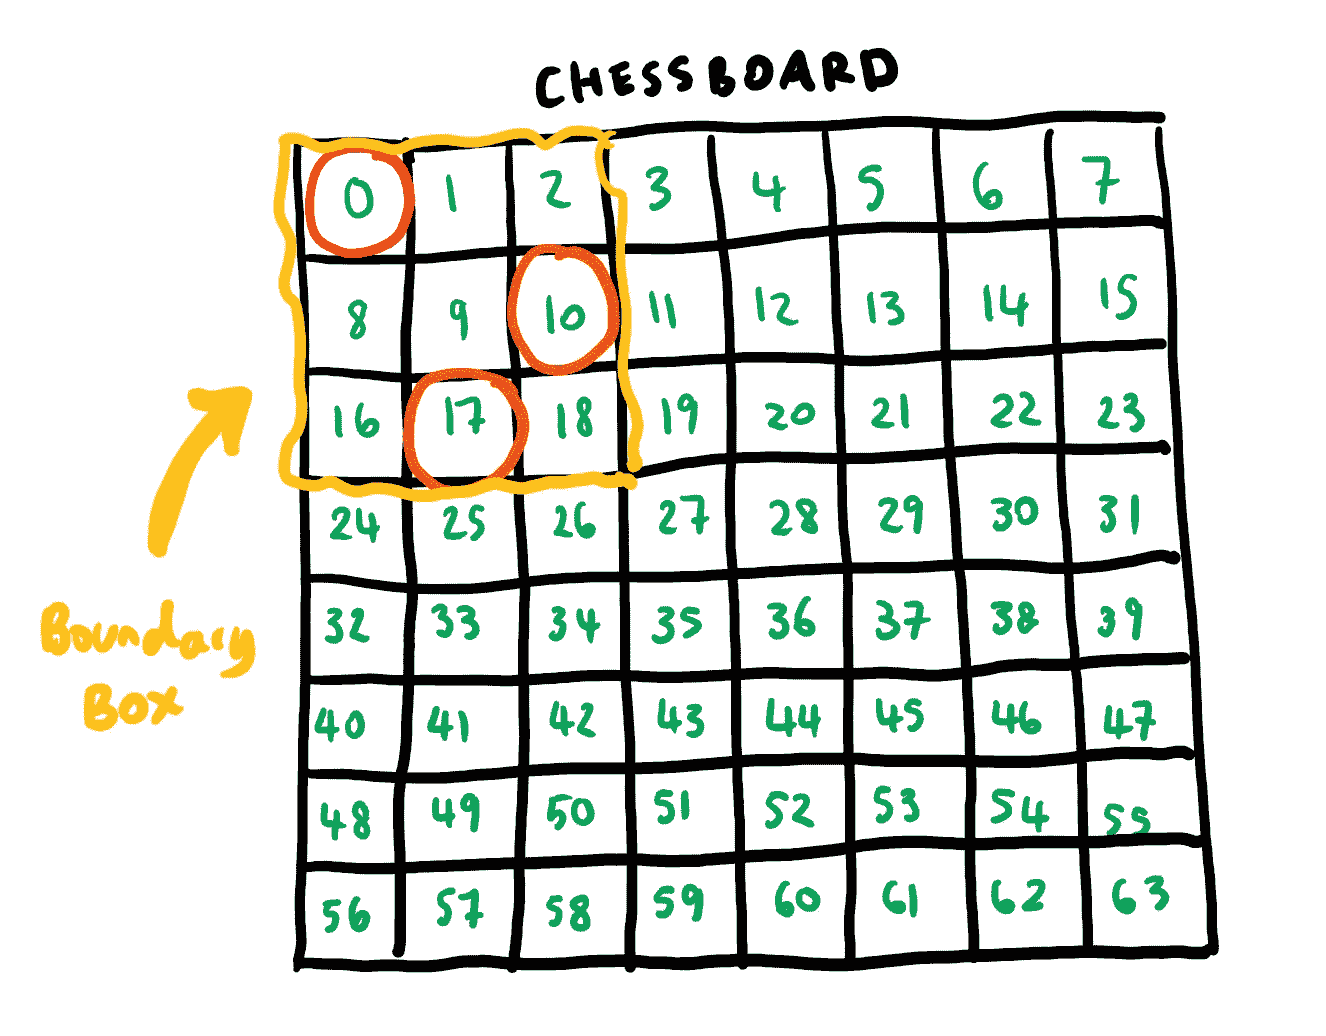 CHESSBOARD
0 1 2 3 4 5 6 7
8 9 10 11 12 13 14 15
16 17 18 19 20 21 22 23
24 25 26 27 28 29 30 31
32 33 34 35 36 37 38 39
40 41 42 43 44 45 46 47
48 49 50 51 52 53 54 55
56 57 58 59 60 61 62 63
Boundary
Box